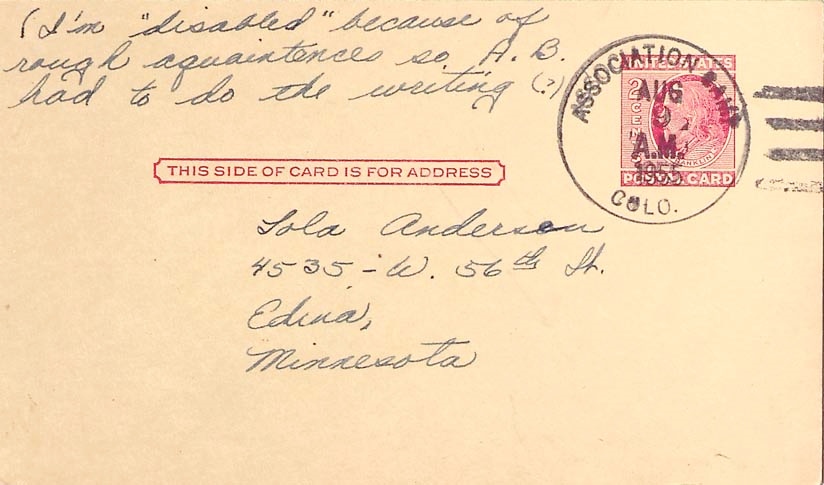 (I'm "disabled" because of
rough aquaintences so A.B.
had to do the writing (?)
ASSOCIATION CAMP
COLO.
AUG
9
A.M.
1955
UNITED STATES
2
CENTS
FRANKLIN
POSTAL CARD
THIS SIDE OF CARD IS FOR ADDRESS
Lola Anderson
4535 - W. 56th St.
Edina,
Minnesota